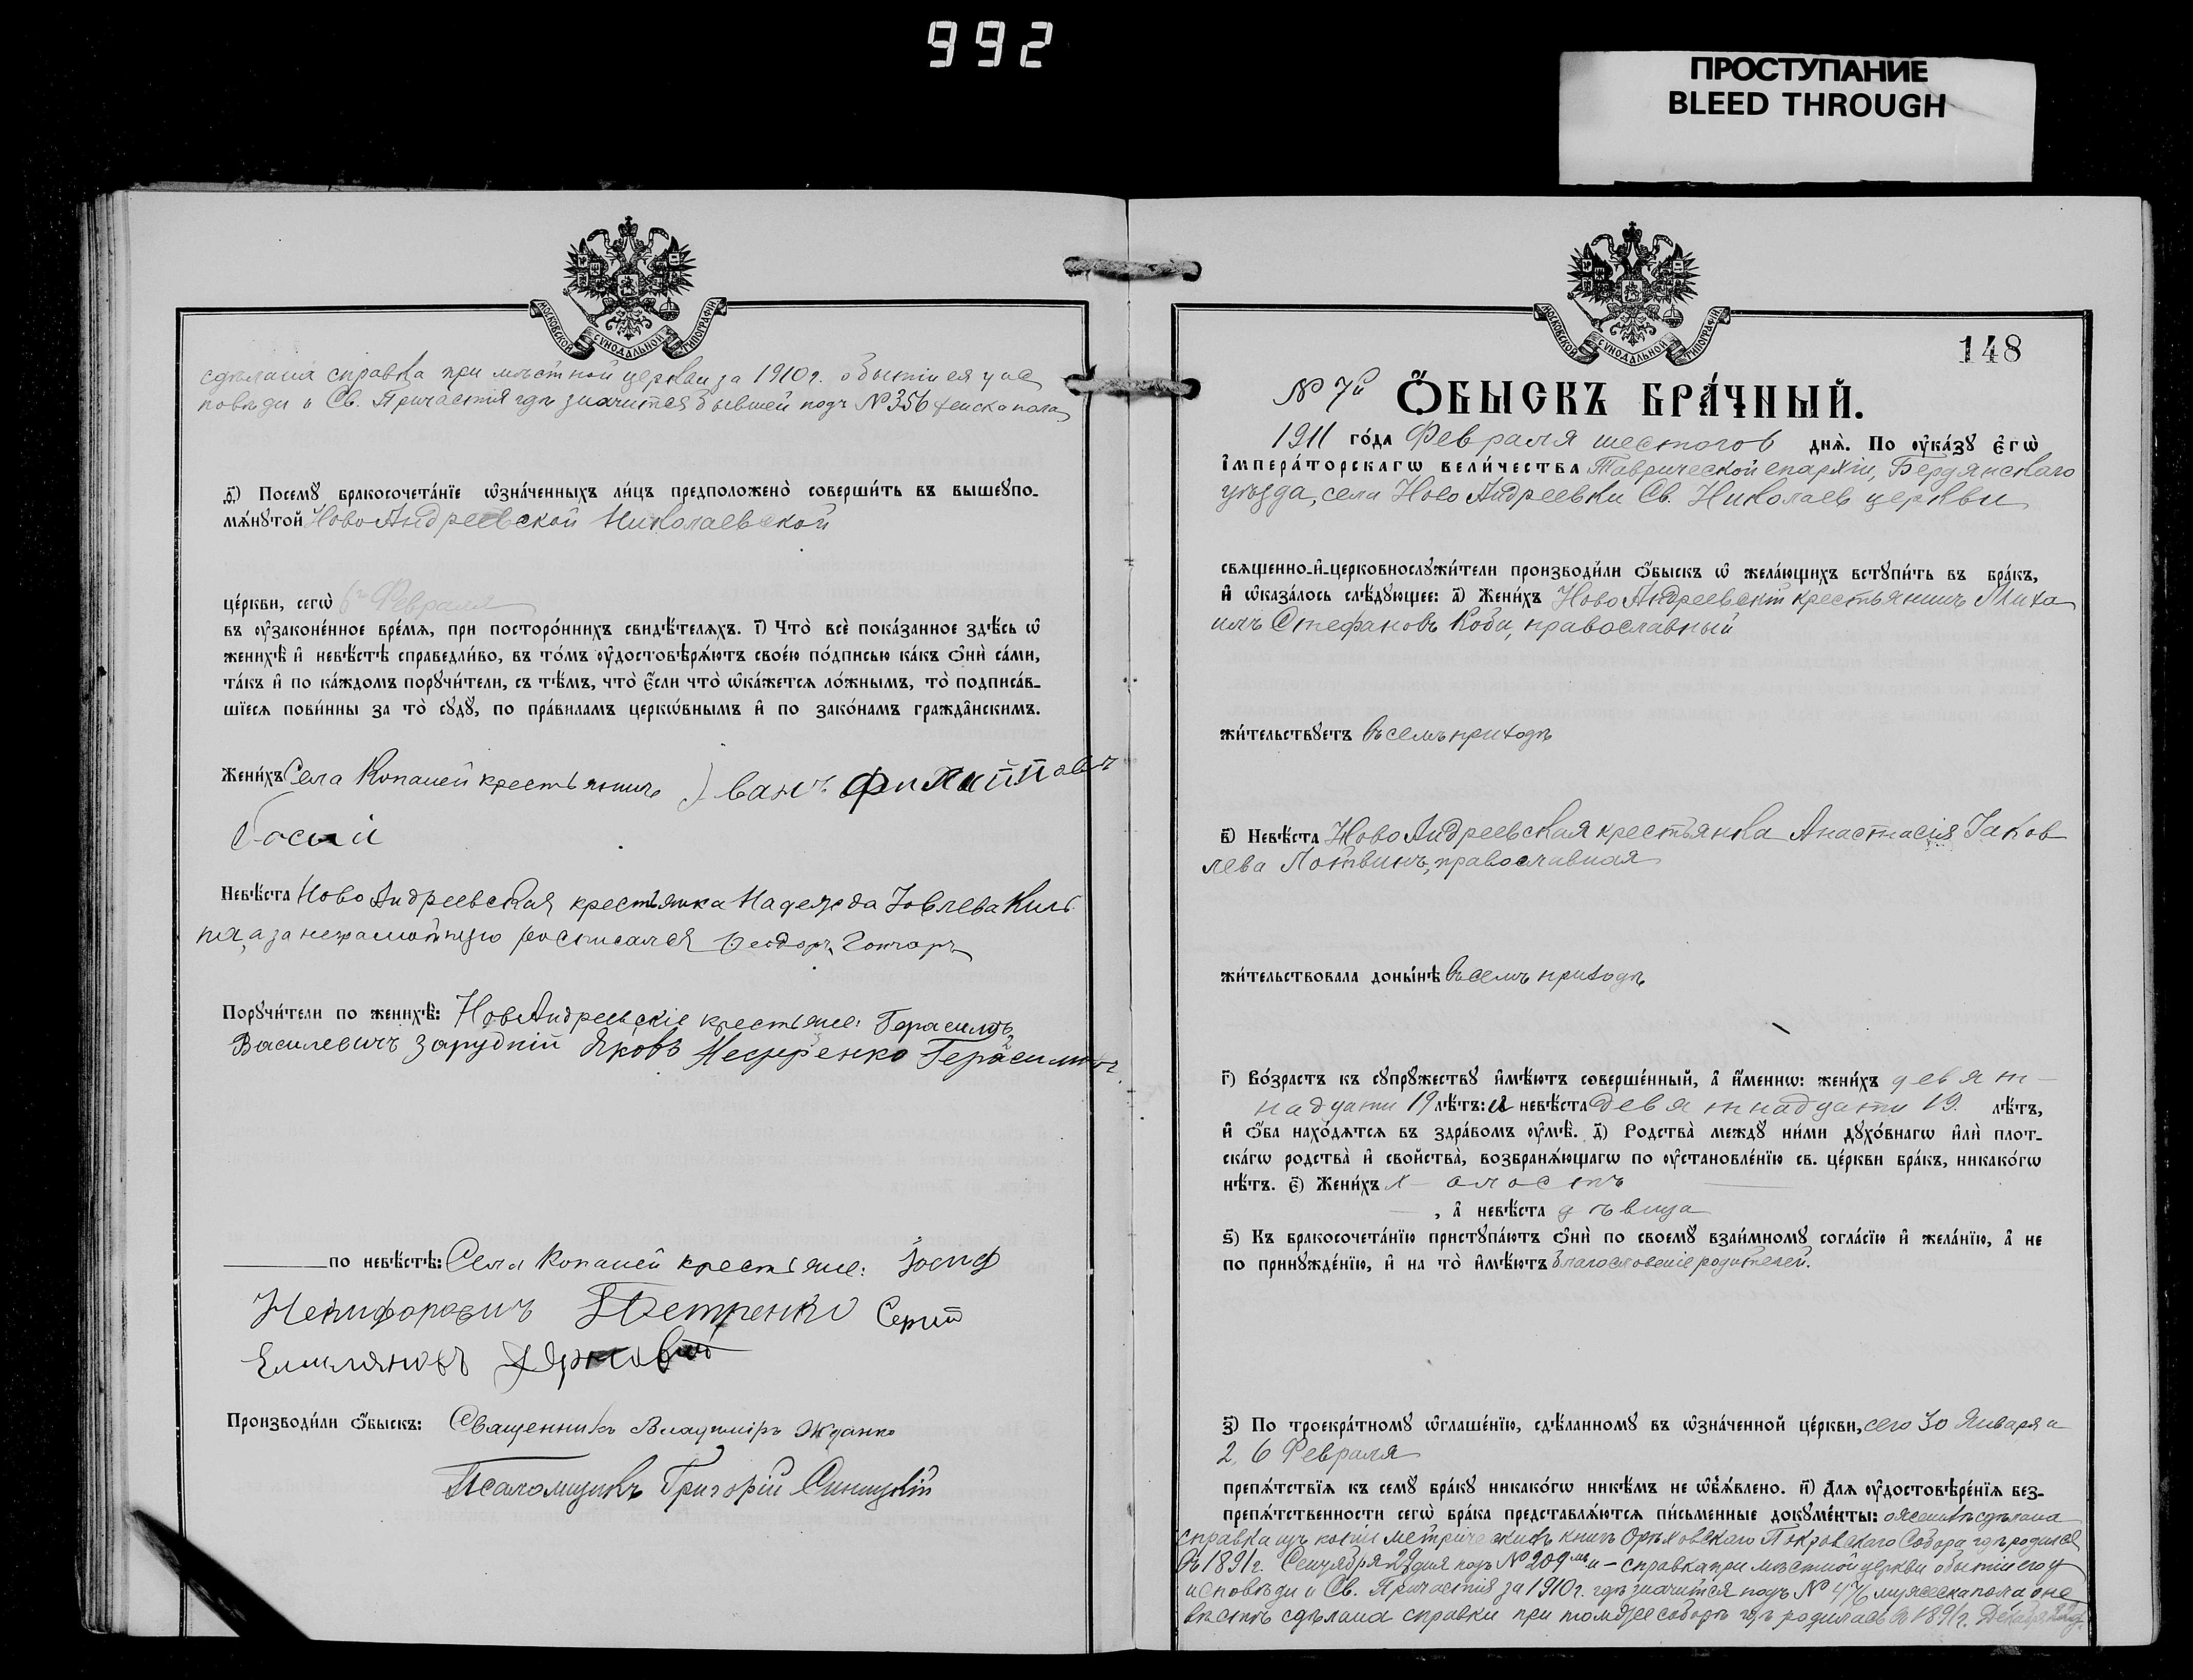 992
ПРОСТУПАНИЕ
BLEED THROUGH
МОСКОВСКОЙ СѴНОДАЛЬНОЙ ТИПОГРАФІИ
сдѣлана справка при мѣстной церкви за 1910 г. о бытіи ея у ис
повѣди и Св. Причастія гдѣ значится бывшей подъ № 356 женска пола
д҃) Посемꙋ бракосочета́нїе ѡ҆зна́ченныхъ ли́цъ предположено̀ соверши́ть въ вышеупо-
мѧ́нꙋтой НовоАндреевской Николаевской
це́ркви, сегѡ̀ 6го Февраля
въ ᲂу҆законе́нное вре́мѧ, при посторо́ннихъ свидѣ́телѧхъ. і҃) Что̀ всѐ пока́занное здѣ́сь ѡ҆
женихѣ̀ и҆ невѣ́стѣ справедли́во, въ то́мъ ᲂу҆достовѣрѧ́ютъ свое́ю по́дписью ка́къ ѻ҆нѝ са́ми,
та́къ и҆ по ка́ждомъ порꙋчи́тели, съ тѣ́мъ, что̀ є҆́сли что̀ ѡ҆ка́жетсѧ ло́жнымъ, то̀ подписа́в-
шїесѧ пови́нны за то̀ сꙋдꙋ̀, по пра́виламъ церкѡ́внымъ и҆ по зако́намъ гражда̂нскимъ.
Жени́хъ Села Копаней крестьянинъ Иванъ Филипповъ
Босый
Невѣ́ста НовоАндреевская крестьянка Надежда Іовлева Кил
па, а за неграмотную росписался Ѳеодоръ Гончаръ
Порꙋчи́тели по женихѣ̀: НовоАндреевскіе крестьяне: Герасимъ
Василевичъ Зарудній Яковъ Нестеренко Герасимовъ
по невѣ́стѣ: Села Копаней крестьяне: Іосиф
Некифоровичъ Петренко Сергій
Емиляновъ
Производи́ли ѻ҆́быскъ: Священникъ Владиміръ Жданко
Псаломщикъ Григорій Синицкій
МОСКОВСКОЙ СѴНОДАЛЬНОЙ ТИПОГРАФІИ
148
№ 7й Ѻ҆́БЫСКЪ БРА́ЧНЫЙ.
1911 го́да Февраля шестого дня̀. По ᲂу҆ка́зꙋ є҆гѡ̀
і҆мпера́торскагѡ вели́чества Таврической епархіи, Бердянскаго
уѣзда, села Ново Андреевки Св. Николаев церкви
свѧщенно-и҆-церковнослꙋжи́тели производи́ли ѻ҆́быскъ ѡ҆ жела́ющихъ встꙋпи́ть въ бра́къ,
и҆ ѡ҆каза́лось слѣ́дꙋющее: а҃) Жени́хъ Ново Андреевскій крестьянинъ Миха
илъ Стефановъ Коби, православный
жи́тельствꙋетъ въ семъ приходѣ
в҃) Невѣ́ста Ново Андреевская крестьянка Анастасія Іаков
лева Логвинъ, православная
жи́тельствовала доны́нѣ въ семъ приходѣ
г҃) Во́зрастъ къ сꙋпрꙋ́жествꙋ и҆мѣ́ютъ соверше́нный, а҆ и҆́меннѡ: жени́хъ девят-
надцати 19 лѣ́тъ: а невѣ́ста девятнадцати 19. лѣ́тъ,
и҆ ѻ҆́ба нахо́дѧтсѧ въ здра́вомъ ᲂу҆мѣ̀. д҃) Родства̀ междꙋ̀ ни́ми дꙋхо́внагѡ и҆лѝ плот-
ска́гѡ родства̀ и҆ свойства̀, возбранѧ́ющагѡ по ᲂу҆становле́нїю св. це́ркви бра́къ, никако́гѡ
нѣ́тъ. є҃) Жени́хъ х олостъ
, а҆ невѣ́ста дѣвица
ѕ҃) Къ бракосочета́нїю пристꙋпа́ютъ ѻ҆нѝ по своемꙋ̀ взаи́мномꙋ согла́сїю и҆ жела́нїю, а҆ не
по принꙋжде́нїю, и҆ на то̀ и҆мѣ́ютъ благословеніе родителей.
з҃) По троекра́тномꙋ ѡ҆глаше́нїю, сдѣ́ланномꙋ въ ѡ҆зна́ченной це́ркви, сего 30 Января и
2, 6 Февраля
препѧ́тствїѧ къ семꙋ̀ бра́кꙋ никако́гѡ никѣ́мъ не ѡ҆б̾ѧ́влено. и҃) Длѧ ᲂу҆достовѣре́нїѧ без-
препѧ́тственности сегѡ̀ бра́ка представлѧ́ютсѧ пи́сьменные докꙋме́нты: о женихѣ сдѣлана
справка изъ копіи метрическихъ книгъ Орѣховскаго Покровскаго Собора гдѣ родился
въ 1891 г. Сентября дня подъ № 209 мъ и - справка при мѣстной церкви о бытіи его у
исповѣди и Св. Причастія за 1910 г. гдѣ значится подъ № мужеска пола о не
вѣстѣ сдѣлана справки при томъже соборѣ гдѣ родилась въ 1891 г. Декабря